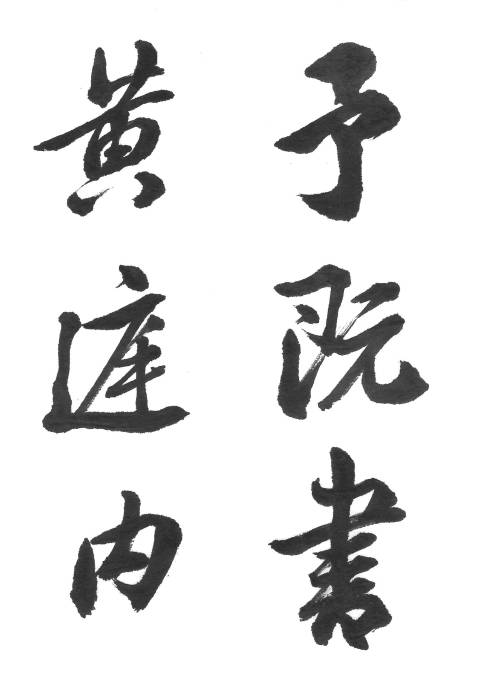 予既書
黄庭内